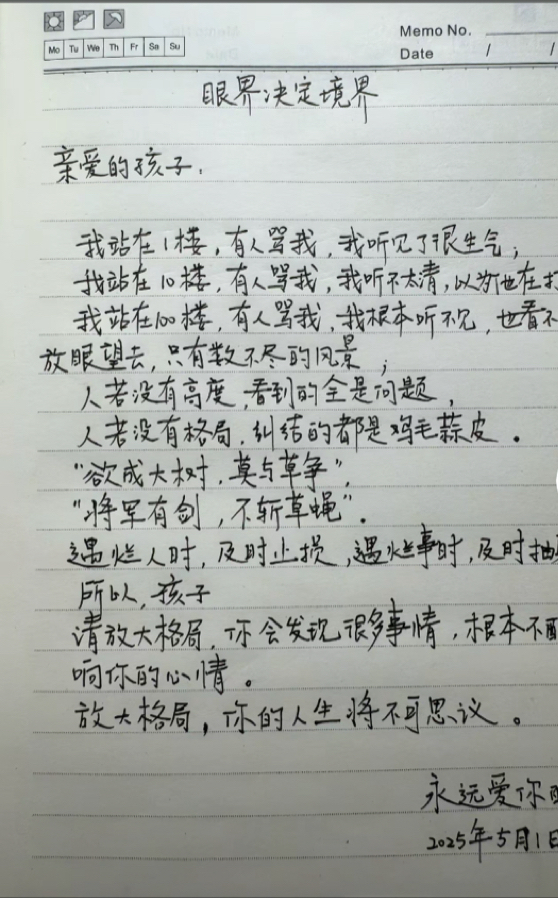 Memo No.
Mo Tu We Th Fr Sa Su
Date / /
眼界决定境界
亲爱的孩子.
我站在1楼，有人骂我，我听见了很生气；
我站在10楼，有人骂我，我听不太清，以为他在打
我站在100楼，有人骂我，我根本听不见，也看不
放眼望去，只有数不尽的风景；
人若没有高度，看到的全是问题，
人若没有格局，纠结的都是鸡毛蒜皮。
“欲成大树，莫与草争”，
“将军有剑，不斩草蝇”。
遇烂人时，及时止损，遇烂事时，及时抽
所以，孩子
请放大格局，你会发现很多事情，根本不配
响你的心情。
放大格局，你的人生将不可思议。
永远爱你
2025年5月1日